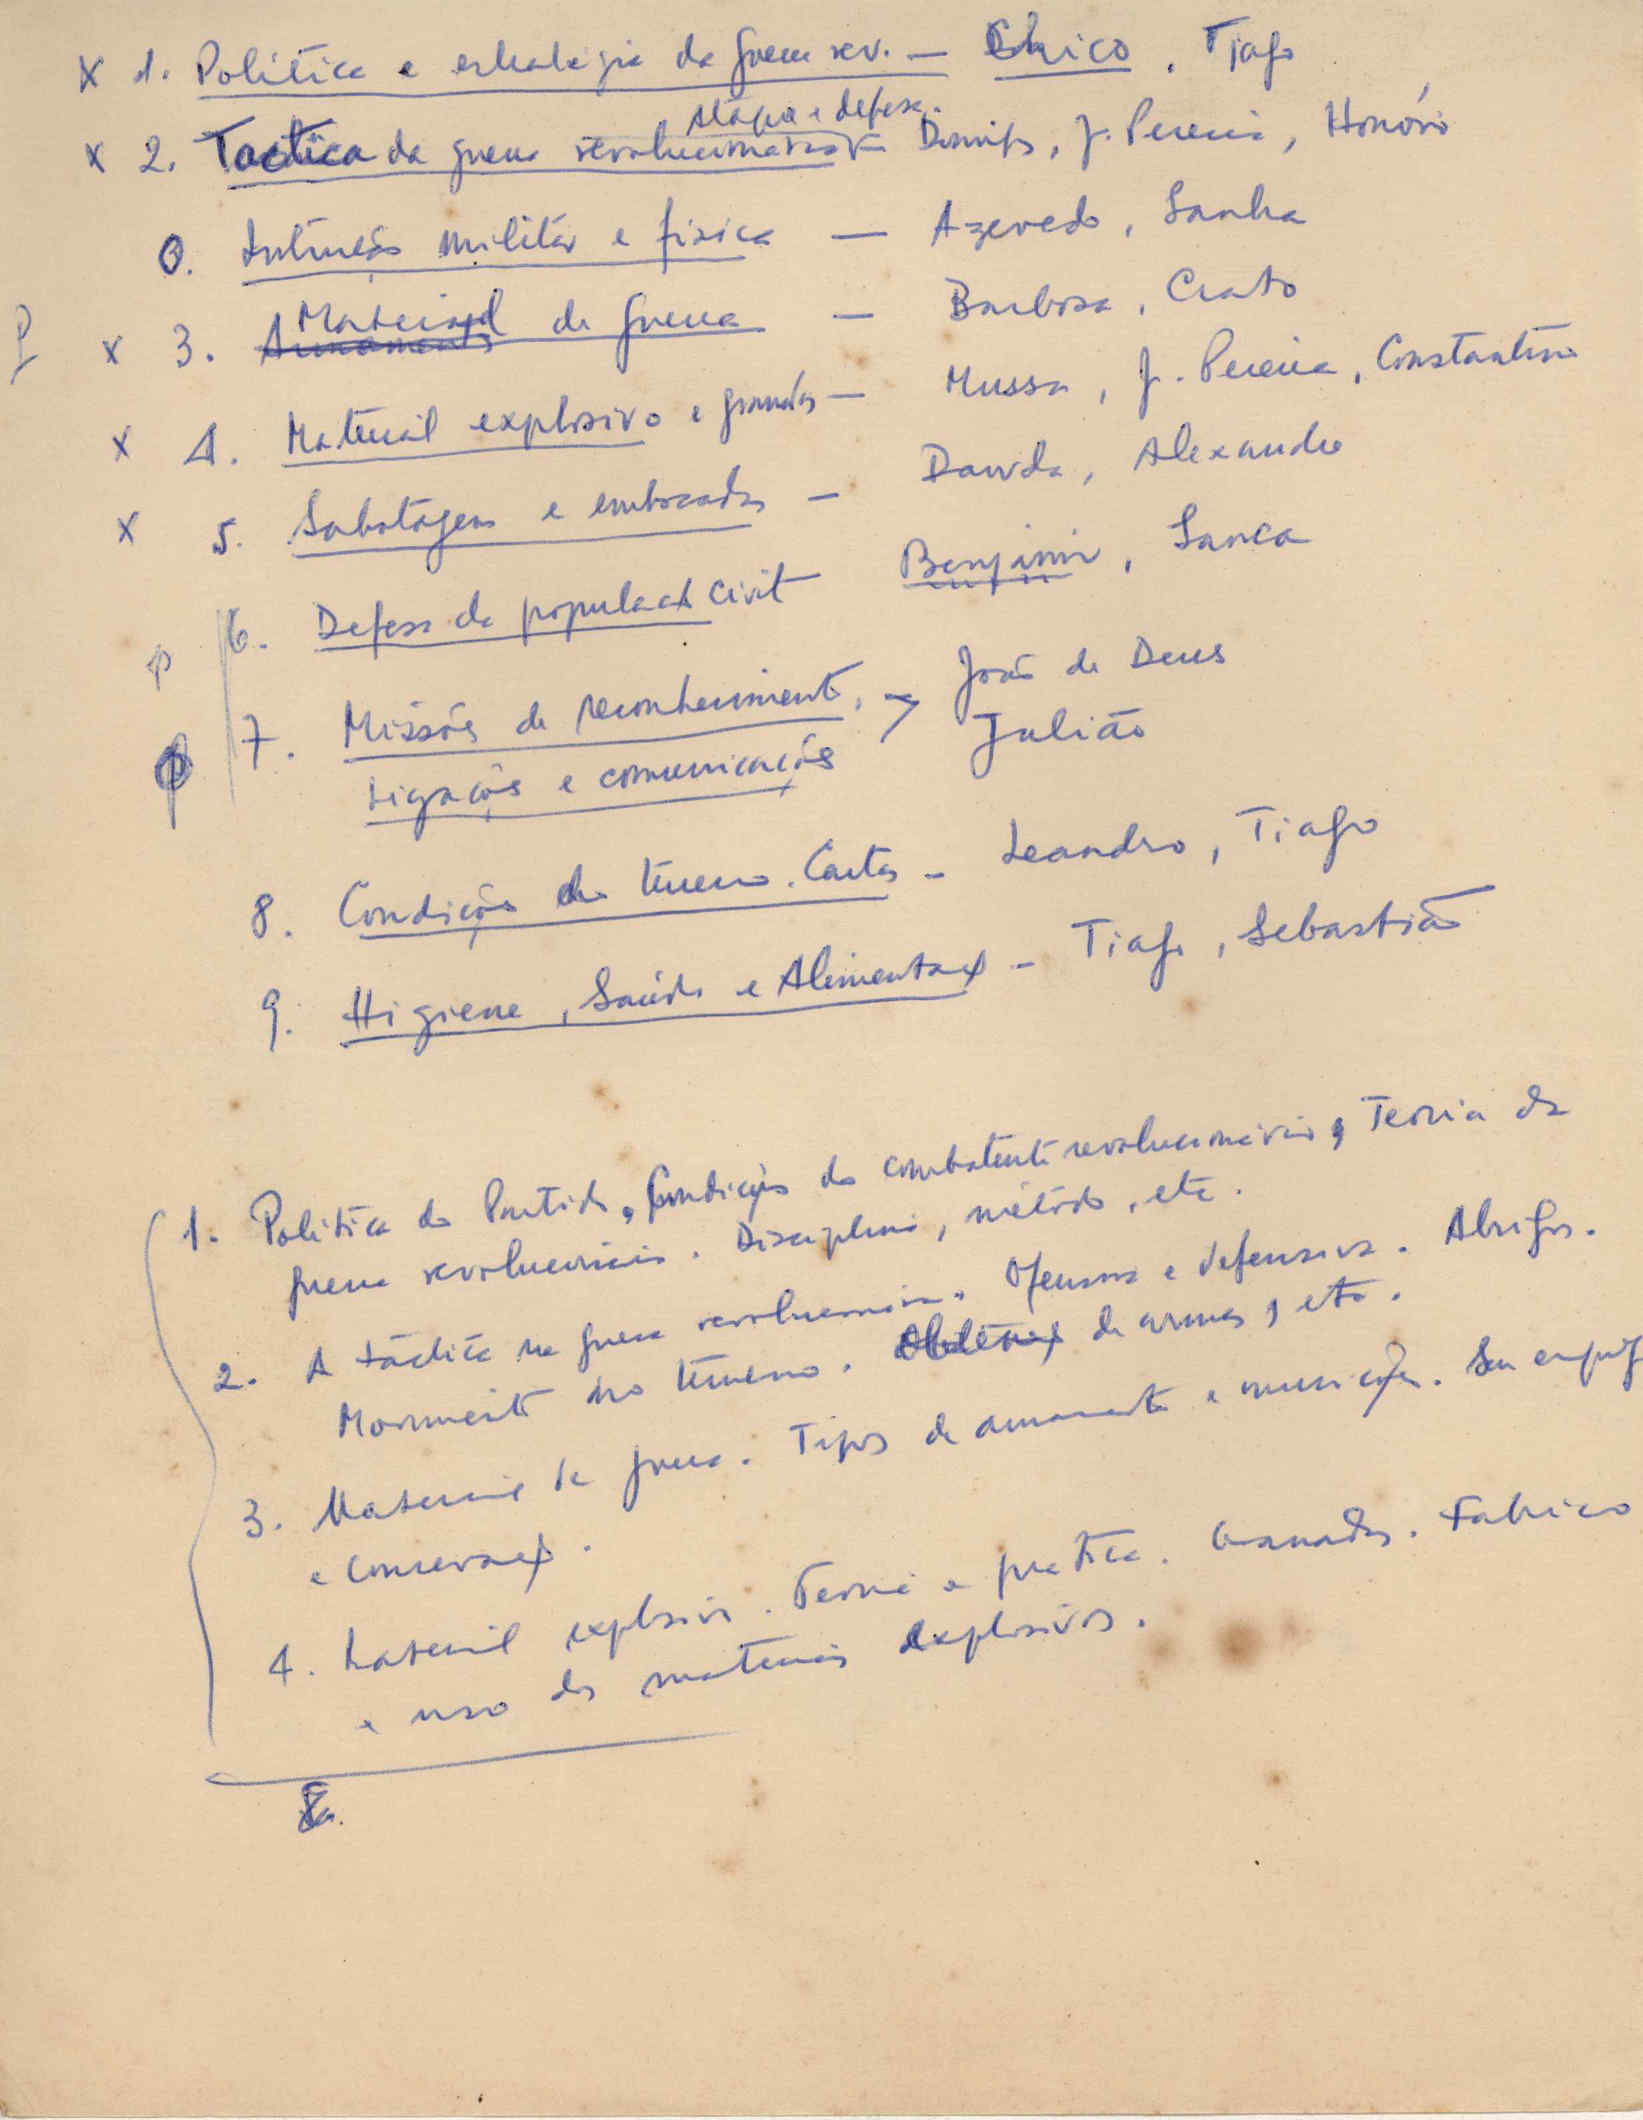 x 1. Política e estratégia da guerra rev. — Chico, Tiago
ataque e defesa.
x 2. Tactica da guerra revolucionaria — Domingos, J. Pereira, Honório
0. Instrução militar e fisica — Azevedo, Sanha
Material
P x 3. Armamento de guerra — Barbosa, Crato
x 4. Material explosivo e granadas — Mussa, J. Pereira, Constantino
x 5. Sabotagens e emboscadas — Dauda, Alexandre
p 6. Defesa da população civil — Benjamim, Sanca
p 7. Missões de reconhecimento. — João de Deus
Ligações e comunicações Julião
8. Condições do terreno. Cartas — Leandro, Tiago
9. Higiene, Saúde e Alimentação — Tiago, Sebastião
1. Política do Partido, Condições do combatente revolucionário, Teoria da
guerra revolucionária. Disciplina, método, etc.
2. A táctica na guerra revolucionária. Ofensiva e defensiva. Abrigos.
Movimento no terreno. Obtenção de armas, etc.
3. Material de guerra. Tipos de armamento e munições. Seu emprego
e conservação.
4. Material explosivo. Teoria e prática. Granadas. Fabrico
e uso dos materiais explosivos.